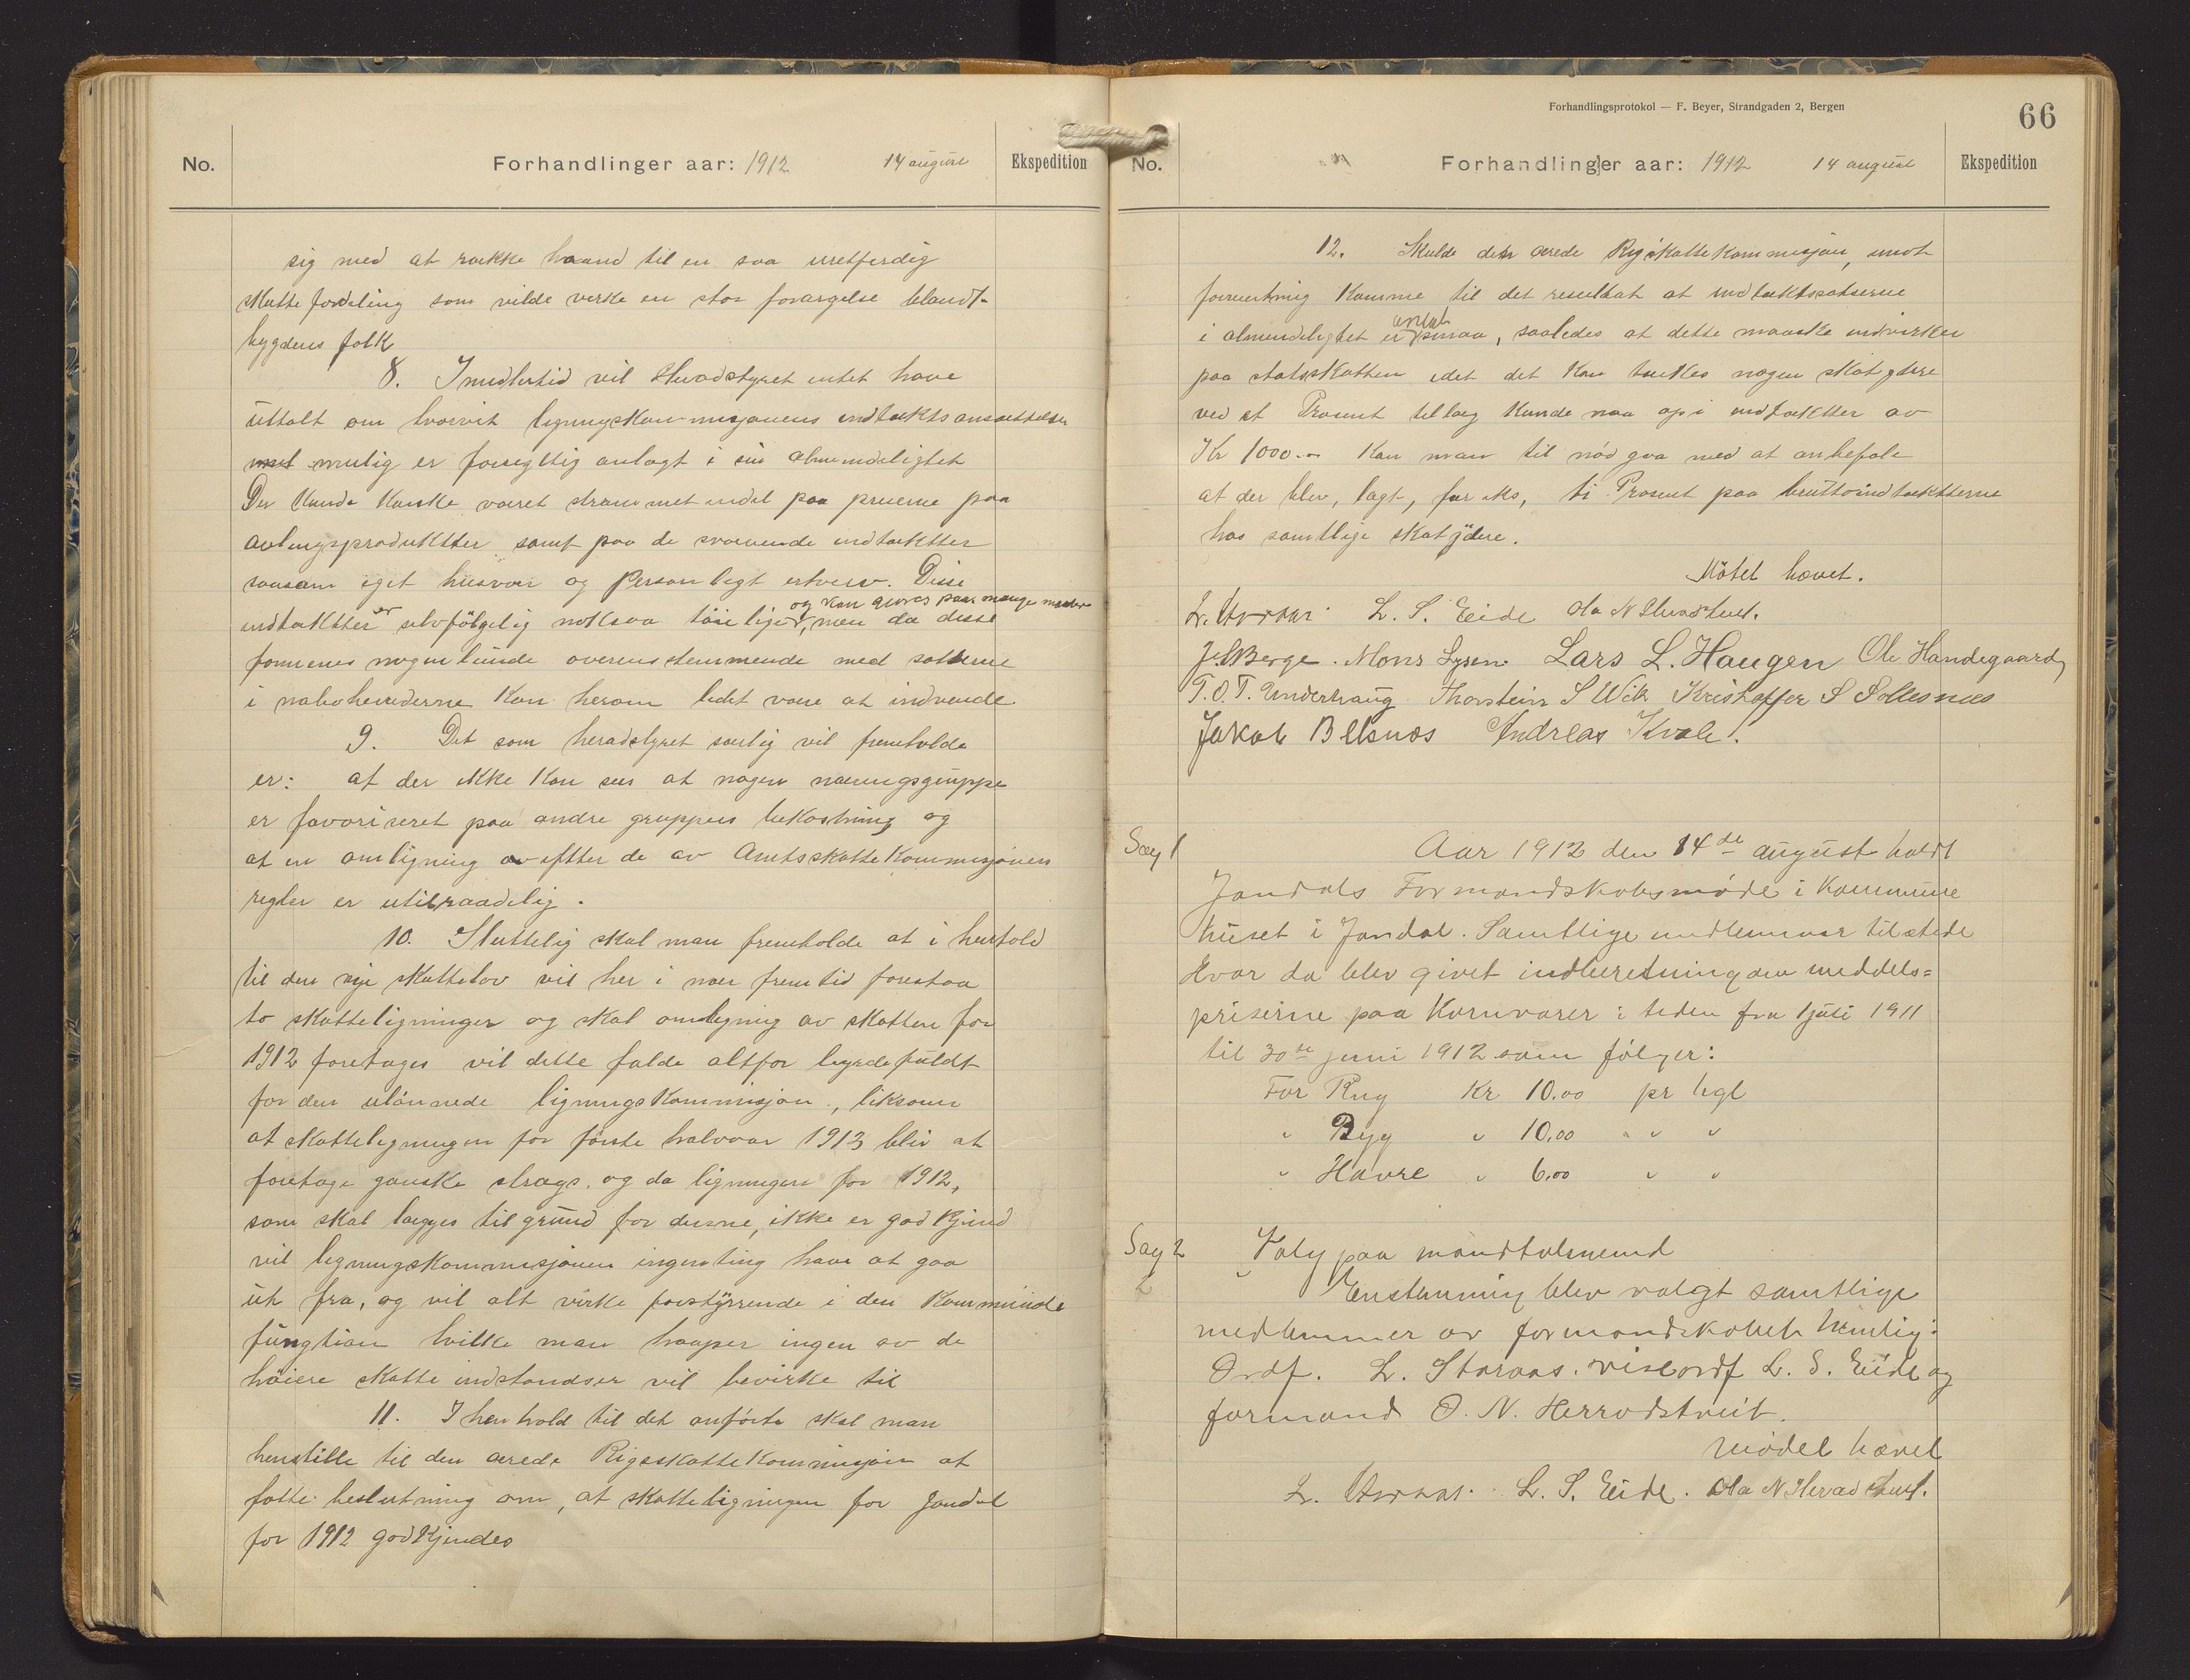 No.
Forhandlinger aar: 1912
14 august
Ekspedition
sig med at række haand til en saa uretferdig
skattefordeling som vilde verke en stor forargelse blandt
bygdens folk
8. Imidlertid vil Heradstyret intet have
uttalt om hvorvit ligningskommisjonens indtækts ansættelser
mulig er forsegtlig anlagt i sin almindelighet
Der kunde kanske været strammet indel paa priserne paa
avlingsprodukter samt paa de svævende indtækter
saasom eget husvær og Personligt erhverv. Disse
indtækter er selvfølgelig noksaa tøielige, og kan gives paa mange maader men da disse
formenes nogenlunde overensstemmende med satserne
i naboherederne kan herom lidet være at indvende
9. Det som heradstyret særlig vil fremholde
er: at der ikke kan sees at nogen næringsgruppe
er favoriseret paa andre gruppers bekostning og
at en omligning efter de av Amtsskattekommisjonens
regler er utilraadelig.
10. Sluttelig skal man fremholde at i henhold
til den nye skattelov vil her i nær fremtid forestaa
to skatteligninger og skal omligning av skatten for
1912 foretages vil dette falde altfor byrdefuldt
for den ulønnede ligningskommisjon, liksom
at skatteligningen for første halvaar 1913 bliv at
foretage ganske strags, og da ligningen for 1912,
som skal lægges til grund for denne, ikke er godkjend
vil ligningskommisjonen ingenting have at gaa
ut fra, og vil alt virke forstyrrende i den Kommunale
fungtion hvilke man haaper ingen av de
høiere skatte indstandser vil bevirke til
11. I henhold til det anførte skal man
henstille til den ærede Rigsskattekommisjon at
fatte beslutning om, at skatteligningen for Jondal
for 1912 godkjendes
Forhandlingsprotokol — F. Beyer, Strandgaden 2, Bergen
66
No.
Forhandlinger aar: 1912
14 august
Ekspedition
12. Skulde den ærede Rigskattekommisjon, imot
forventning komme til det resultat at indtæktssatserne
i almindelighet er antat smaa, saaledes at dette maaske indvirker
paa statsskatten idet det kan tænkes nogen skatydere
ved et Prosent tillæg kunde naa op i indtækter av
Kr 1000.- kan man til nød gaa med at anbefale
at der blev, lagt, for eks, ti Prosent paa bruttoindtækterne
hos samtlige skatydere.
Møtet hævet.
L. Storaas L. S. Eide Ola N Heradstveit.
J. Berge. Mons Lysen. Lars L. Haugen Ole Handegaard
T. O. T. Underhaug Thorstein S Wik Kristoffer S Sollesnes
Jakob Belsnes Andreas Kvale.
Sag 1
Aar 1912 den 14de august holdt
Jondals Formandskabsmøde i Kommune
huset i Jondal. Samtlige medlemmer tilstede
Hvor da blev givet indberetning om meddels=
priserne paa Kornvarer i tiden fra 1 juli 1911
til 30te juni 1912 som følger:
For Rug Kr 10.00 pr hgl
" Byg " 10,00 " "
" Havre " 6,00 " "
Sag 2
2
Valg paa mandtalsmend
Enstemmig blev valgt samtlige
medlemmer av formandskabet nemlig:
Ordf. L. Storaas. viseordf L. S. Eide og
formand O. N. Herrodstveit.
Mødet hævet
L. Storaas. L. S. Eide. Ola N Heradstveit.